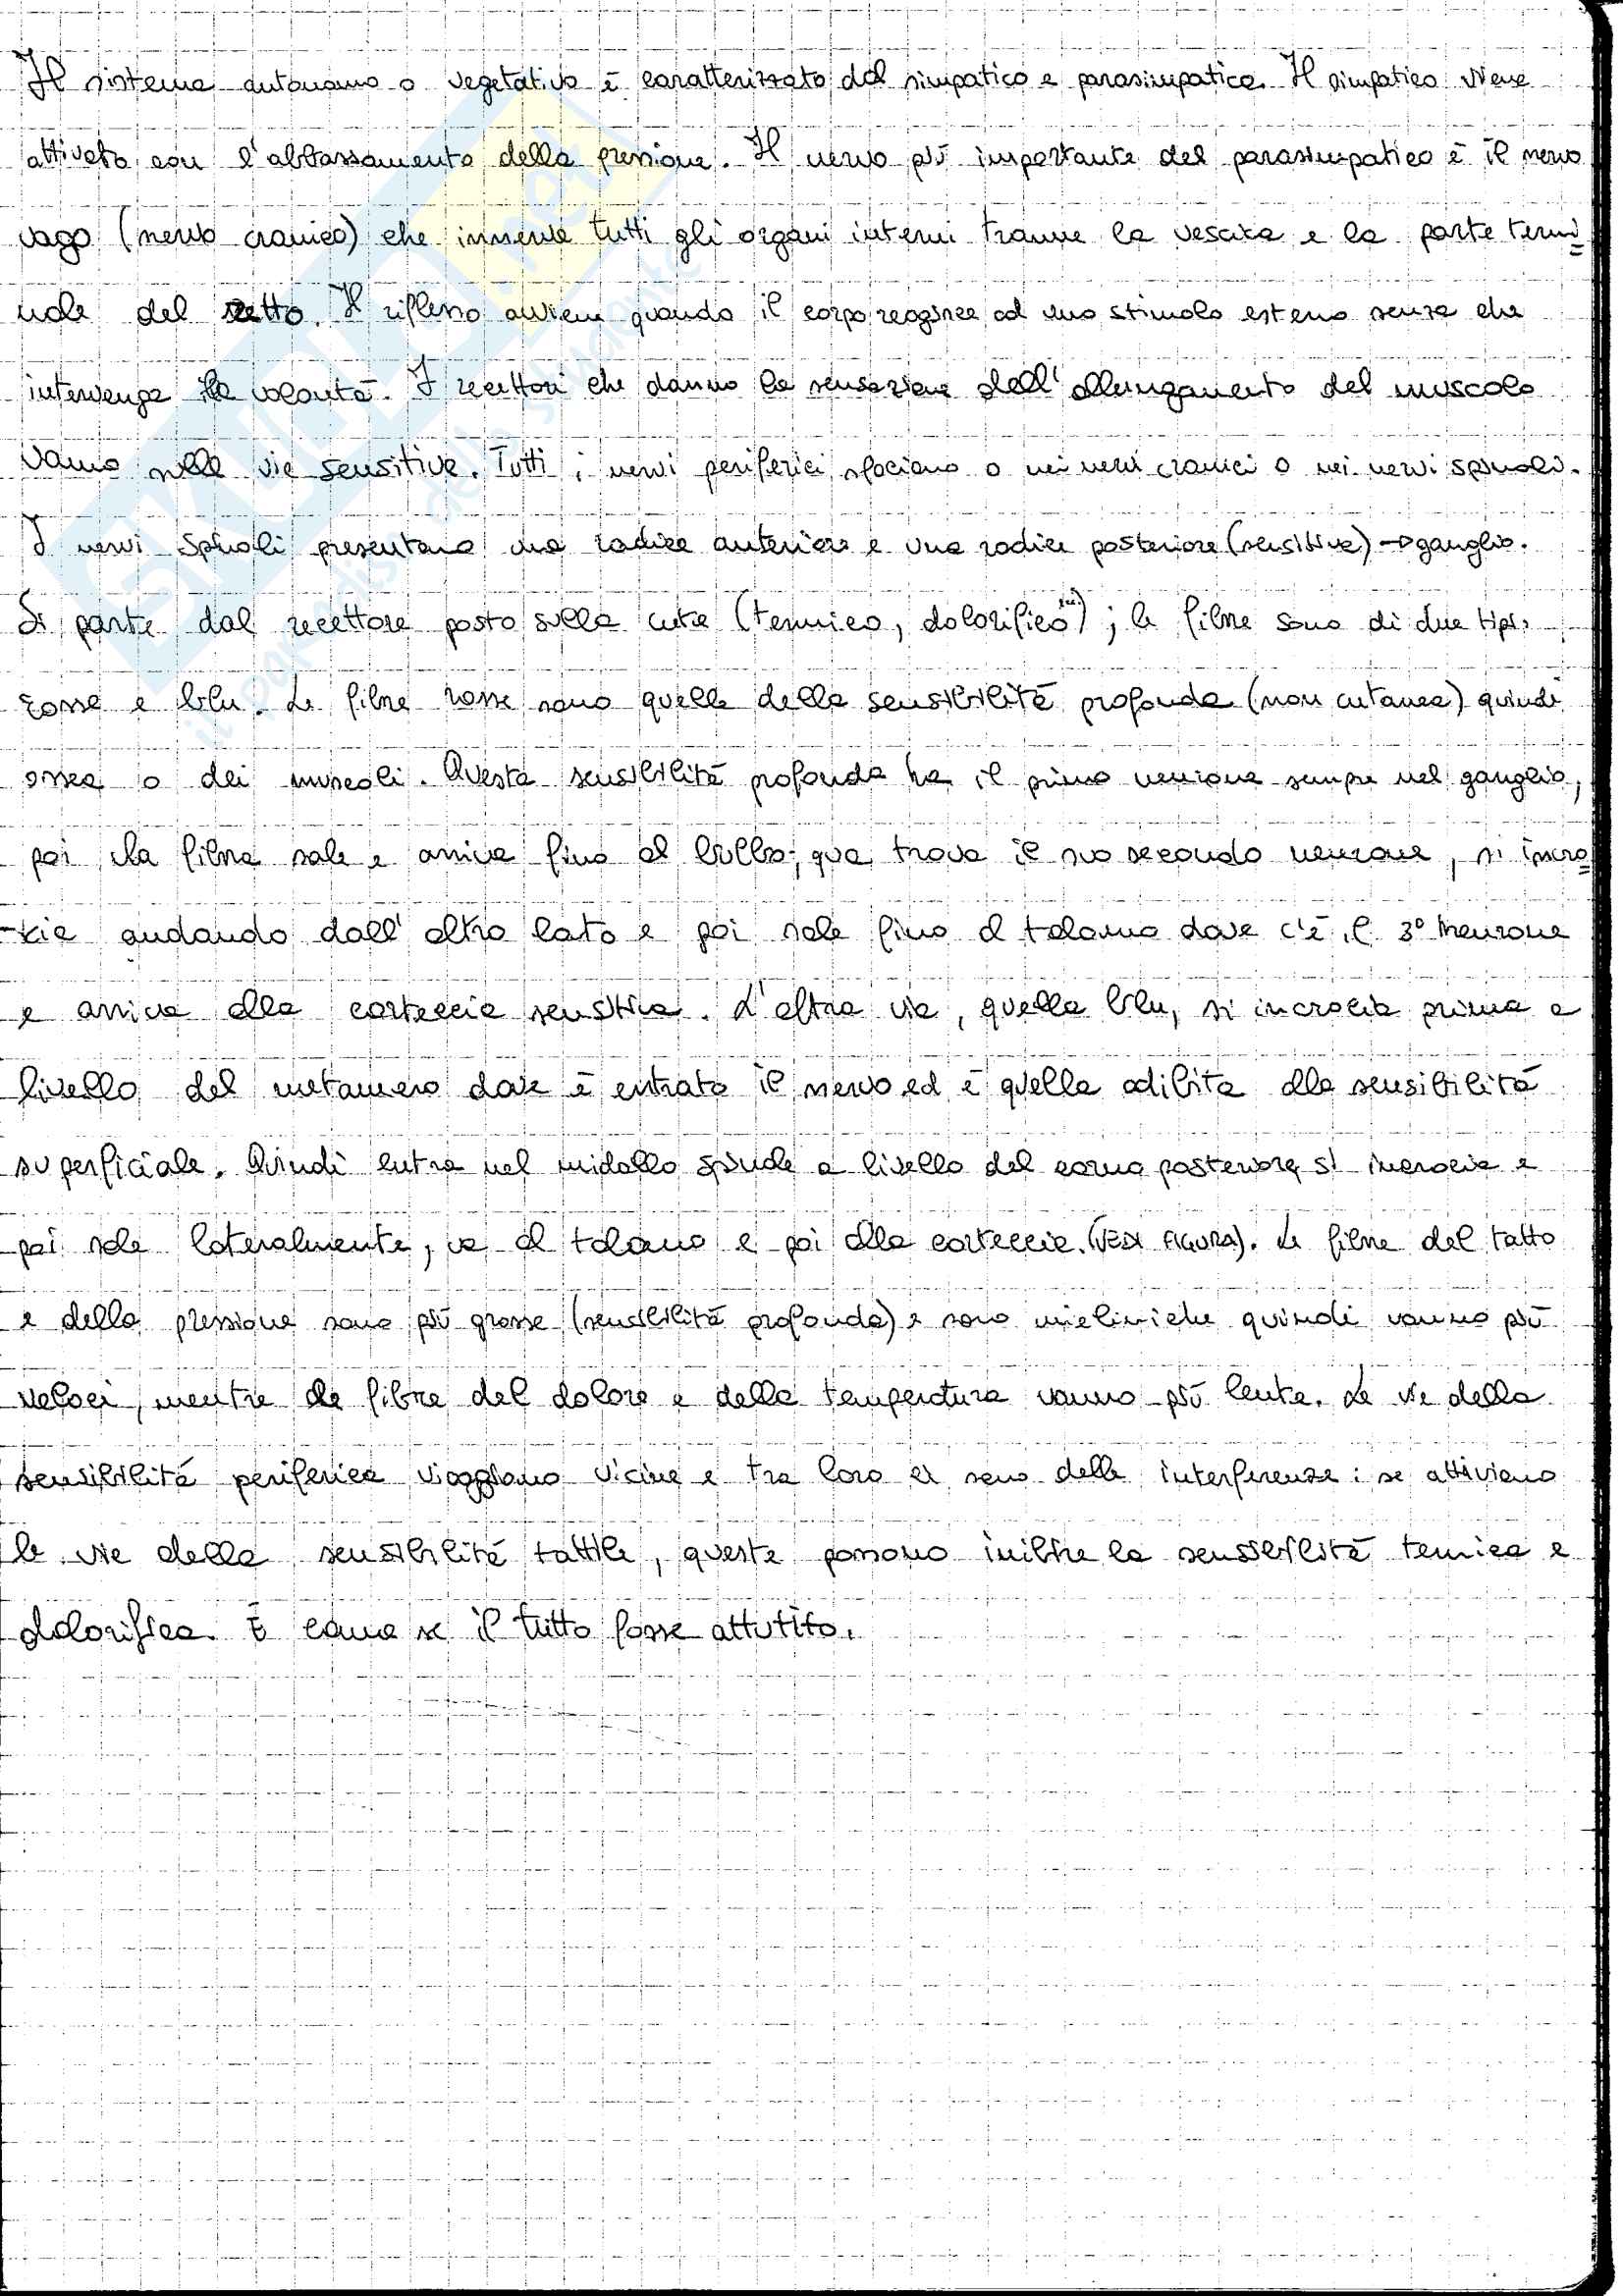 Il sistema autonomo o vegetativo è caratterizzato dal simpatico e parasimpatico. Il simpatico viene
attivato con l'abbassamento della pressione. Il nervo più importante del parasimpatico è il nervo
vago (nervo cranico) che innerva tutti gli organi interni tranne la vescica e la parte termi=
nale del retto. Il riflesso avviene quando il corpo reagisce ad uno stimolo esterno senza che
intervenga la volontà. I recettori che danno la sensazione dell'allungamento del muscolo
vanno nelle vie sensitive. Tutti i nervi periferici sfociano o nei nervi cranici o nei nervi spinali.
I nervi spinali presentano una radice anteriore e una radice posteriore (sensitiva) → ganglio.
Si parte dal recettore posto sulla cute (termico, dolorifico); le fibre sono di due tipi:
rosse e blu. Le fibre rosse sono quelle della sensibilità profonda (non cutanea) quindi
ossea o dei muscoli. Questa sensibilità profonda ha il primo neurone sempre nel ganglio,
poi la fibra sale e arriva fino al bulbo; qua trova il suo secondo neurone, si incro=
-cia andando dall'altro lato e poi sale fino al talamo dove c'è il 3° neurone
e arriva alla corteccia sensitiva. L'altra via, quella blu, si incrocia prima a
livello del metamero dove è entrato il nervo ed è quella adibita alla sensibilità
superficiale. Quindi entra nel midollo spinale a livello del corno posteriore, si incrocia e
poi sale lateralmente, va al talamo e poi alla corteccia. (VEDI FIGURA). Le fibre del tatto
e della pressione sono più grosse (sensibilità profonda) e sono mieliniche quindi vanno più
veloci, mentre le fibre del dolore e della temperatura vanno più lente. Le vie della
sensibilità periferica viaggiano vicine e tra loro ci sono delle interferenze: se attiviamo
le vie della sensibilità tattile, queste possono inibire la sensibilità termica e
dolorifica. È come se il tutto fosse attutito.